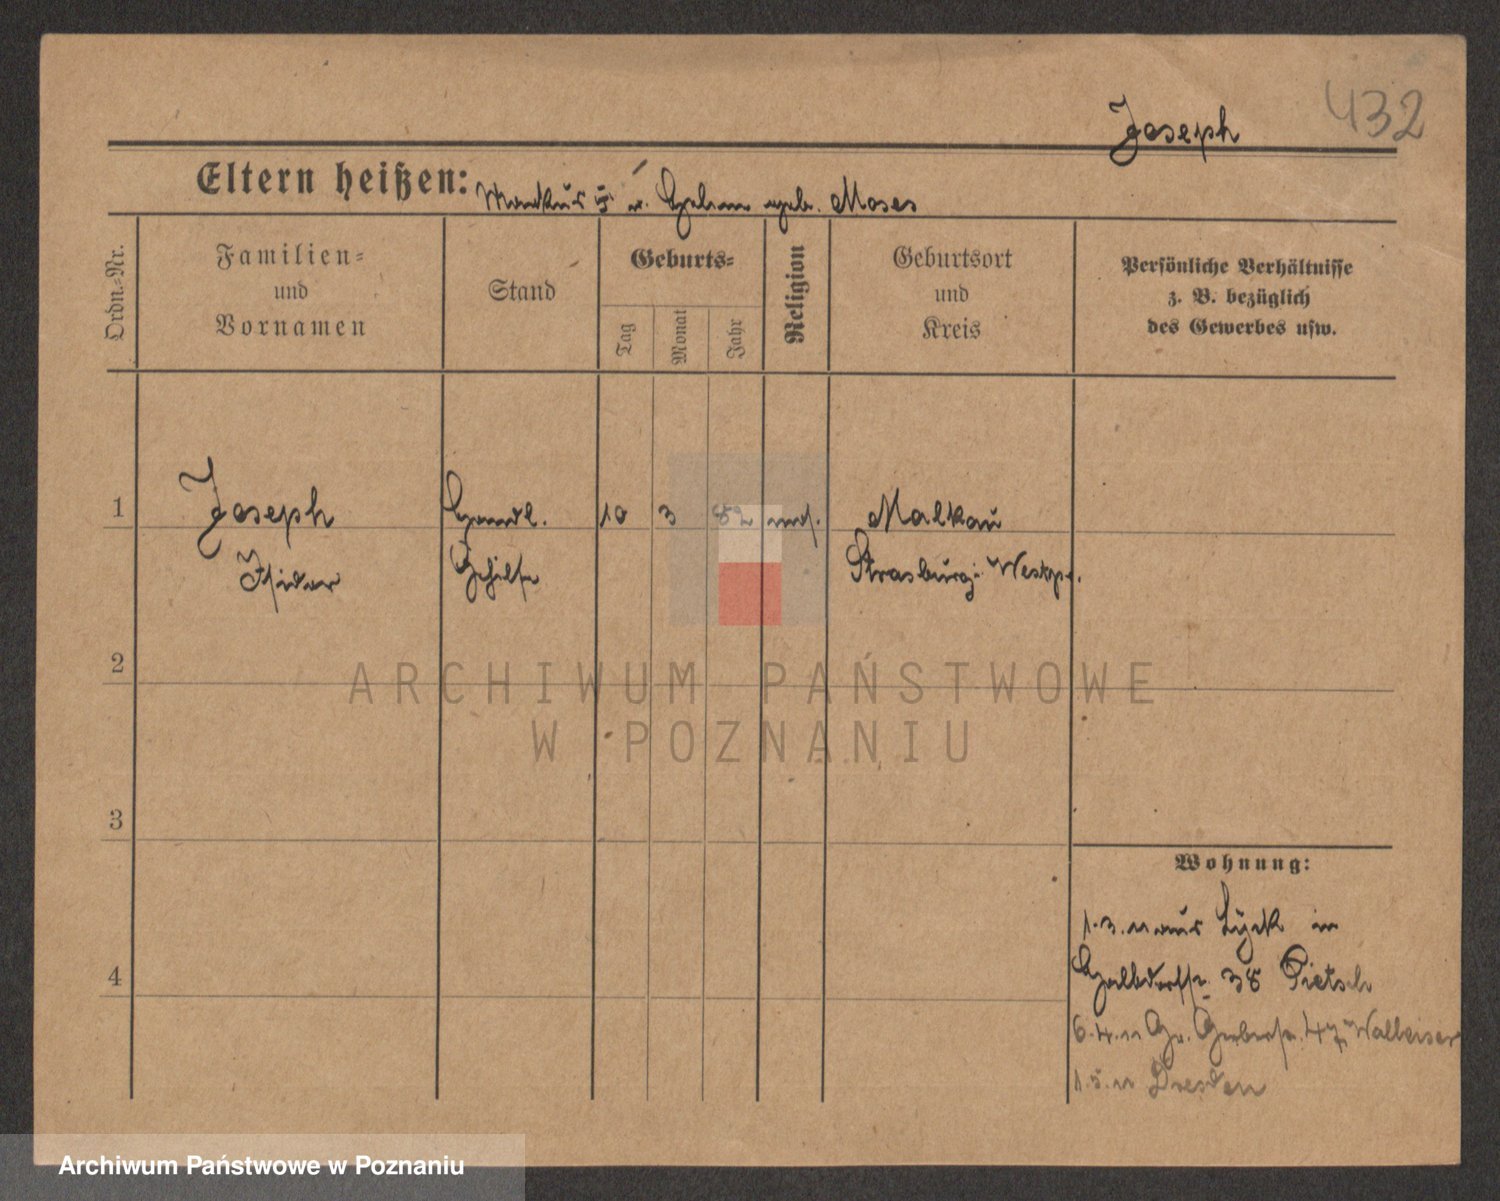 432
Joseph
Eltern heißen: Markus J. u. geb. Moses
Ordn.-Nr.
Familien-
und
Vornamen
Stand
Geburts-
Tag
Monat
Jahr
Religion
Geburtsort
und
Kreis
Persönliche Verhältnisse
z. B. bezüglich
des Gewerbes usw.
1
Joseph
Handl.
10
3
82
mos.
Malkau
Isidor
Gehilfe
Strasburg Westpr.
2
3
4
Wohnung:
1.3.11 aus Lyck in
Halbdorfstr. 38 Pietsch
6.4.11 Gr. Gerberstr. 47 Walleiser
1.5.11 Dresden
ARCHIWUM PAŃSTWOWE
W POZNANIU
Archiwum Państwowe w Poznaniu